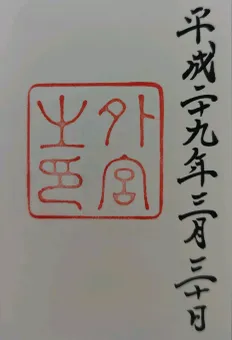 平成二十九年三月三十日
外宮
之印